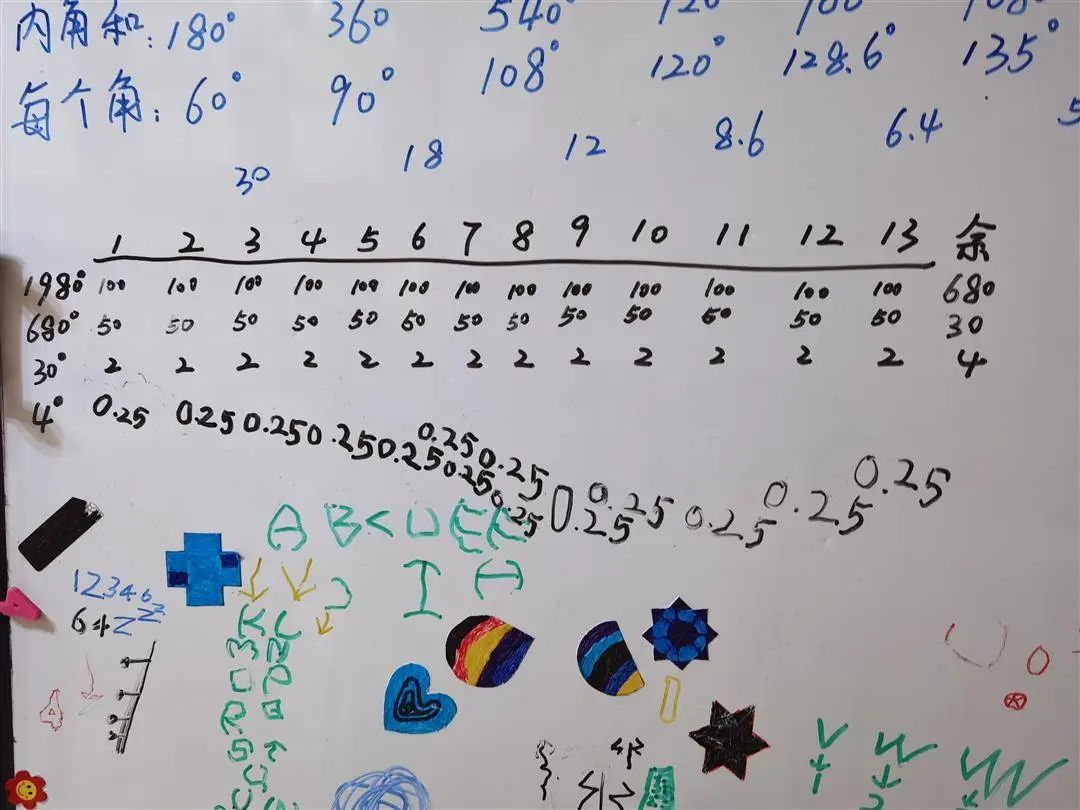 内角和:180° 360 540° 120
每个角:60° 90° 108° 120° 128.6° 135°
30 18 12 8.6 6.4
1 2 3 4 5 6 7 8 9 10 11 12 13 余
1980° 100 100 100 100 100 100 100 100 100 100 100 100 100 680
680° 50 50 50 50 50 50 50 50 50 50 50 50 50 30
30° 2 2 2 2 2 2 2 2 2 2 2 2 2 4
4° 0.25 0.25 0.25 0.25 0.25 0.25 0.25 0.25 0.25 0.25 0.25 0.25 0.25 0.25
A B < U E E
I H
12346
64
K L
4